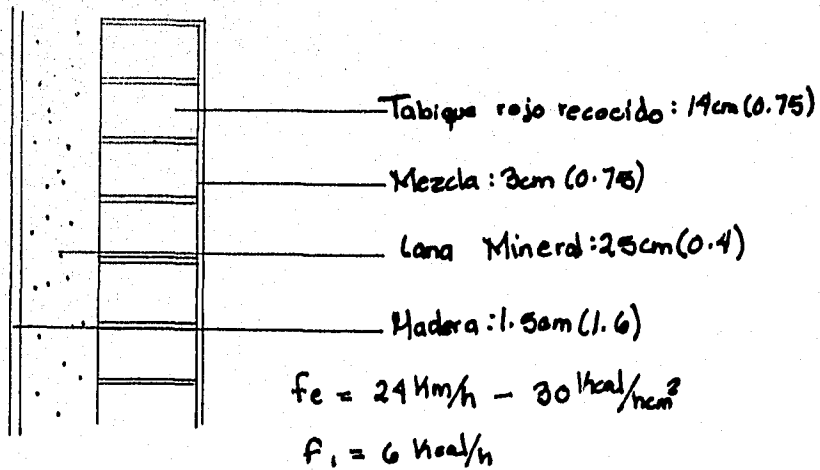 Tabique rojo recocido: 14cm (0.75)
Mezcla: 3cm (0.75)
Lana Mineral: 25cm (0.4)
Madera: 1.5cm (1.6)
fe = 24 Km/h - 30 Kcal/hcm²
f, = 6 Kcal/h